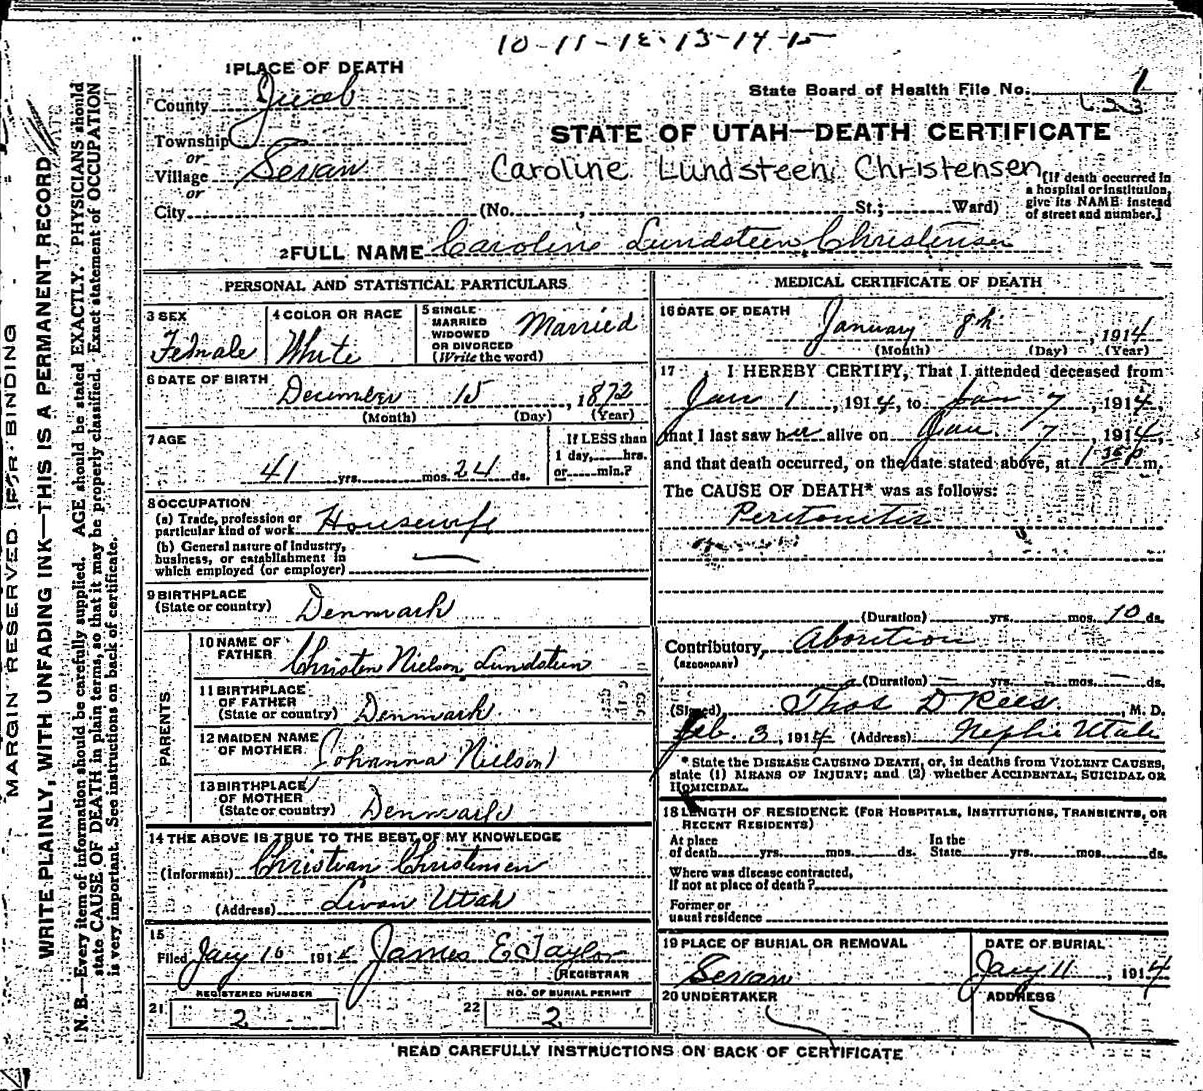 10-11-12-13-14-15
1 PLACE OF DEATH
County Juab
State Board of Health File No. 1
623
Township
or
Village Levan
or
City (No. , St.; Ward)
STATE OF UTAH—DEATH CERTIFICATE
Caroline Lundsteen Christensen
[If death occurred in
a hospital or institution,
give its NAME instead
of street and number.]
2 FULL NAME Caroline Lundsteen Christensen
PERSONAL AND STATISTICAL PARTICULARS
3 SEX
Female
4 COLOR OR RACE
White
5 SINGLE
MARRIED
WIDOWED
OR DIVORCED
(Write the word)
Married
6 DATE OF BIRTH
December 15, 1872
(Month) (Day) (Year)
7 AGE
41 yrs. mos. 24 ds.
If LESS than
1 day, hrs.
or min.?
8 OCCUPATION
(a) Trade, profession or
particular kind of work Housewife
(b) General nature of Industry,
business, or establishment in
which employed (or employer) —
9 BIRTHPLACE
(State or country) Denmark
PARENTS
10 NAME OF
FATHER Christen Nielson Lundsteen
11 BIRTHPLACE
OF FATHER
(State or country) Denmark
12 MAIDEN NAME
OF MOTHER Johanna Nielson
13 BIRTHPLACE
OF MOTHER
(State or country) Denmark
14 THE ABOVE IS TRUE TO THE BEST OF MY KNOWLEDGE
(Informant) Christian Christensen
(Address) Levan Utah
15
Filed Jany 16 1914 James E Taylor
REGISTRAR
REGISTERED NUMBER
21 2
NO. OF BURIAL PERMIT
22 2
MEDICAL CERTIFICATE OF DEATH
16 DATE OF DEATH
January 8th, 1914
(Month) (Day) (Year)
17 I HEREBY CERTIFY, That I attended deceased from
Jan 1, 1914, to Jan 7, 1914,
that I last saw her alive on Jan. 7, 1914,
and that death occurred, on the date stated above, at 1 35 p m.
The CAUSE OF DEATH* was as follows:
Peritonitis
(Duration) yrs. mos. 10 ds.
Contributory Abortion
(SECONDARY)
(Duration) — yrs. — mos. — ds.
(Signed) Thos D Rees M. D.
Feb. 3, 1914 (Address) Nephi Utah
* State the DISEASE CAUSING DEATH, or, in deaths from VIOLENT CAUSES,
state (1) MEANS OF INJURY; and (2) whether ACCIDENTAL, SUICIDAL OR
HOMICIDAL.
18 LENGTH OF RESIDENCE (FOR HOSPITALS, INSTITUTIONS, TRANSIENTS, OR
RECENT RESIDENTS)
At place
of death yrs. mos. ds.
In the
State yrs. mos. ds.
Where was disease contracted,
If not at place of death?
Former or
usual residence
19 PLACE OF BURIAL OR REMOVAL
Levan
DATE OF BURIAL
Jany 11, 1914
20 UNDERTAKER
ADDRESS
READ CAREFULLY INSTRUCTIONS ON BACK OF CERTIFICATE
MARGIN RESERVED FOR BINDING
WRITE PLAINLY, WITH UNFADING INK—THIS IS A PERMANENT RECORD
N. B.—Every item of information should be carefully supplied. AGE should be stated EXACTLY. PHYSICIANS should
state CAUSE OF DEATH in plain terms, so that it may be properly classified. Exact statement of OCCUPATION
is very important. See instructions on back of certificate.